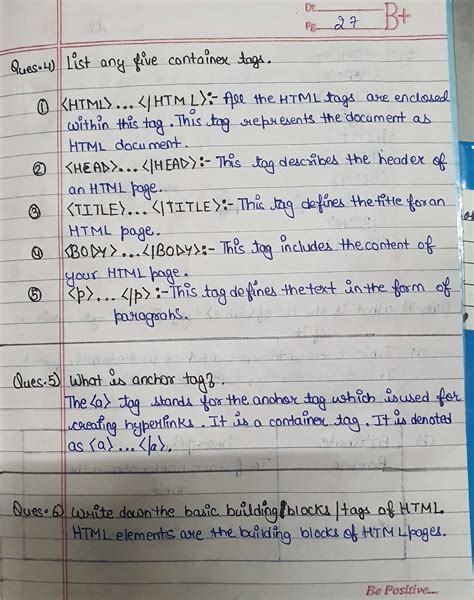 Dt.
Pg. 27 B+
Ques.4) List any five container tags.
① <HTML>...</HTML>:- All the HTML tags are enclosed
within this tag. This tag represents the document as
HTML document.
② <HEAD>...</HEAD>:- This tag describes the header of
an HTML page.
③ <TITLE>...</TITLE>:- This tag defines the title for an
HTML page.
④ <BODY>...</BODY>:- This tag includes the content of
your HTML page.
⑤ <p>...</p>:- This tag defines the text in the form of
paragrahs.
Ques.5) What is anchor tag?.
The <a> tag stands for the anchor tag which is used for
creating hyperlinks. It is a container tag. It is denoted
as <a>...</a>.
Ques.6) Write down the basic building blocks/tags of HTML
HTML elements are the building blocks of HTML pages.
Be Positive...